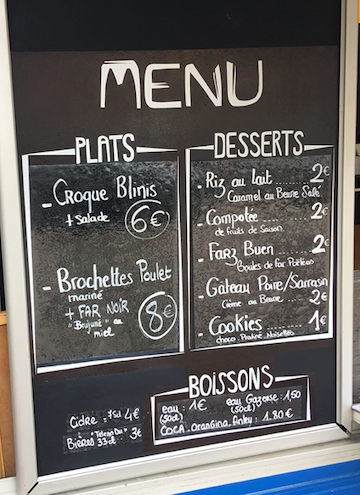 MENU
PLATS
- Croque Blinis
+ Salade
6€
- Brochettes Poulet
mariné
+ FAR NOIR
"Brujuné" au
miel
8€
DESSERTS
- Riz au lait ........ 2€
Caramel au Beurre Salé
- Compotée ........ 2€
de fruits de Saison
- Farz Buen ........ 2€
Boules de far Poêlées
- Gâteau Poire/Sarrasin
Crème au Beurre ... 2€
- Cookies ........ 1€
choco. Praliné. Noisettes
BOISSONS
Cidre : 75cl 4€
Bières "Telenn Du" 33cl : 3€
eau : 1€ (50cl)
eau Gazeuse : 1,50 (50cl)
COCA. Orangina. : 1.80€